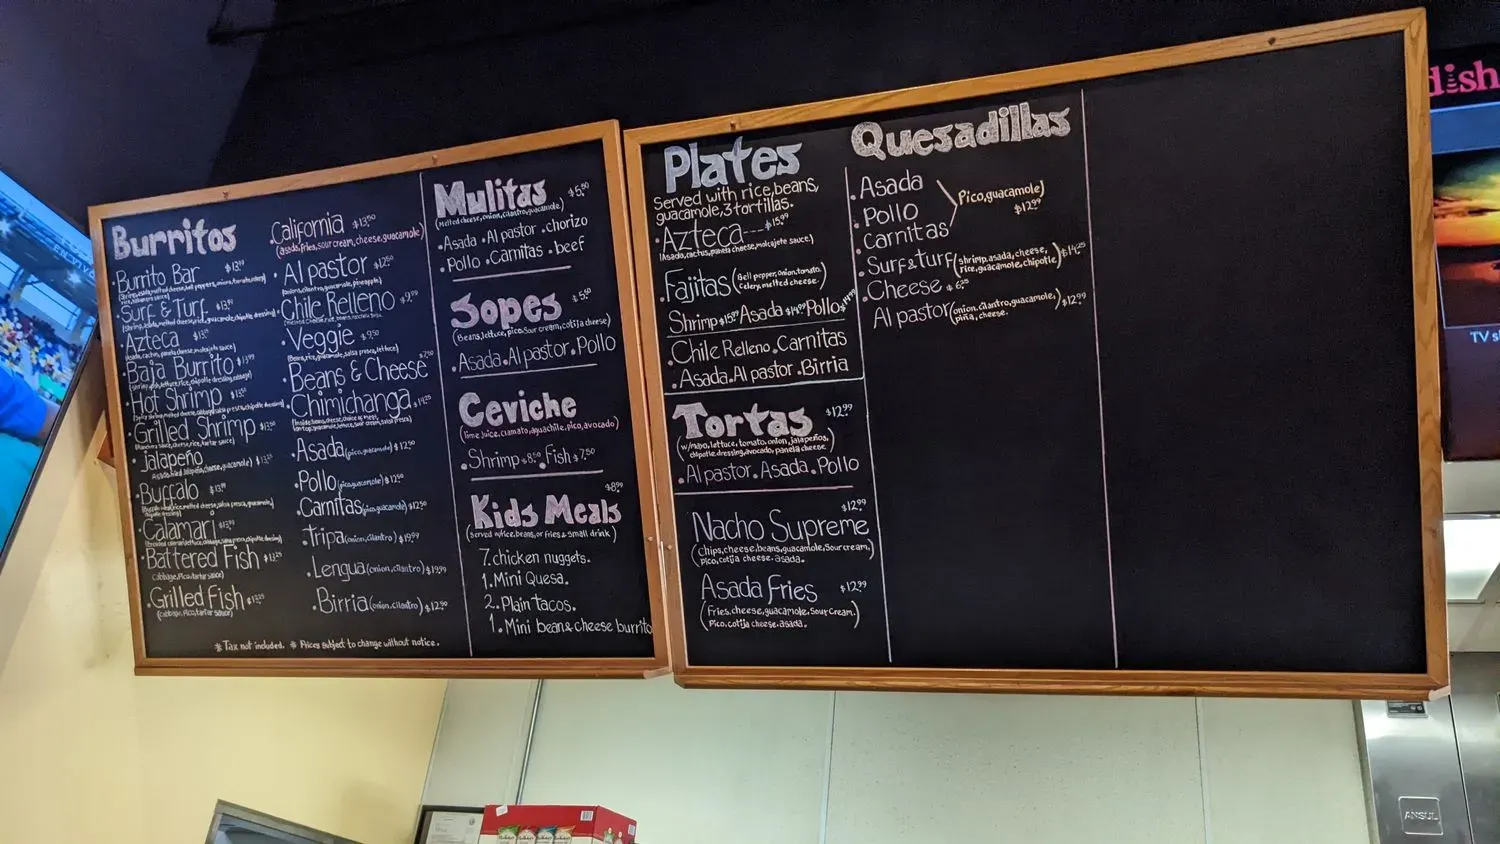 Burritos
Burrito Bar $13.99
Surf & Turf $13.99
Azteca
(Asada, cactus, panela cheese, molcajete sauce)
Baja Burrito $13.99
Hot Shrimp
Grilled Shrimp
Jalapeño
Buffalo $13.99
Calamari $13.99
Battered Fish $13.25
(Cabbage, Pico, tartar sauce)
Grilled Fish $13.25
(Cabbage, Pico, tartar sauce)
California $13.50
(asada, fries, sour cream, cheese, guacamole)
Al pastor $12.50
(onion, cilantro, guacamole, pineapple)
Chile Relleno $9.99
Veggie $9.50
(Beans, rice, guacamole, salsa fresca, lettuce)
Beans & Cheese $7.50
Chimichanga $14.25
Asada (pico, guacamole) $12.50
Pollo (pico, guacamole) $12.50
Carnitas (pico, guacamole) $12.50
Tripa (onion, cilantro) $19.99
Lengua (onion, cilantro) $19.99
Birria (onion, cilantro) $12.90
* Tax not included. * Prices subject to change without notice.
Mulitas $5.50
(Melted cheese, onion, cilantro, guacamole)
• Asada • Al pastor • chorizo
• Pollo • Carnitas • beef
Sopes $5.50
(Beans, lettuce, pico, Sour cream, cotija cheese)
• Asada • Al pastor • Pollo
Ceviche
(lime juice, clamato, aguachile, pico, avocado)
• Shrimp $8.50 • Fish $7.50
$8.99
Kids Meals
(Served w/rice, beans, or fries & small drink)
7. chicken nuggets.
1. Mini Quesa.
2. Plain tacos.
1. Mini bean & cheese burrito
Plates
Served with rice, beans,
guacamole, 3 tortillas.
• Azteca---- $15.99
(Asada, cactus, panela cheese, molcajete sauce.)
• Fajitas (Bell pepper, onion, tomato,
Celery, melted cheese.)
Shrimp $15.99 Asada $14.99 Pollo $14.99
• Chile Relleno • Carnitas
• Asada • Al pastor • Birria
Tortas $12.99
(w/mayo, lettuce, tomato, onion, jalapeños,
chipotle dressing, avocado, panela cheese.)
• Al pastor • Asada • Pollo
$12.99
Nacho Supreme
(Chips, cheese, beans, guacamole, Sour cream,
Pico, cotija cheese. asada.)
Asada Fries $12.99
(Fries, cheese, guacamole, Sour Cream,
Pico, cotija cheese. asada.)
Quesadillas
• Asada
• Pollo
• Carnitas
Pico, guacamole)
$12.99
• Surf & turf (shrimp, asada, cheese,
rice, guacamole, chipotle) $14.25
• Cheese $6.25
Al pastor (onion, cilantro, guacamole,
piña, cheese.) $12.99
dish
TV s
ANSUL